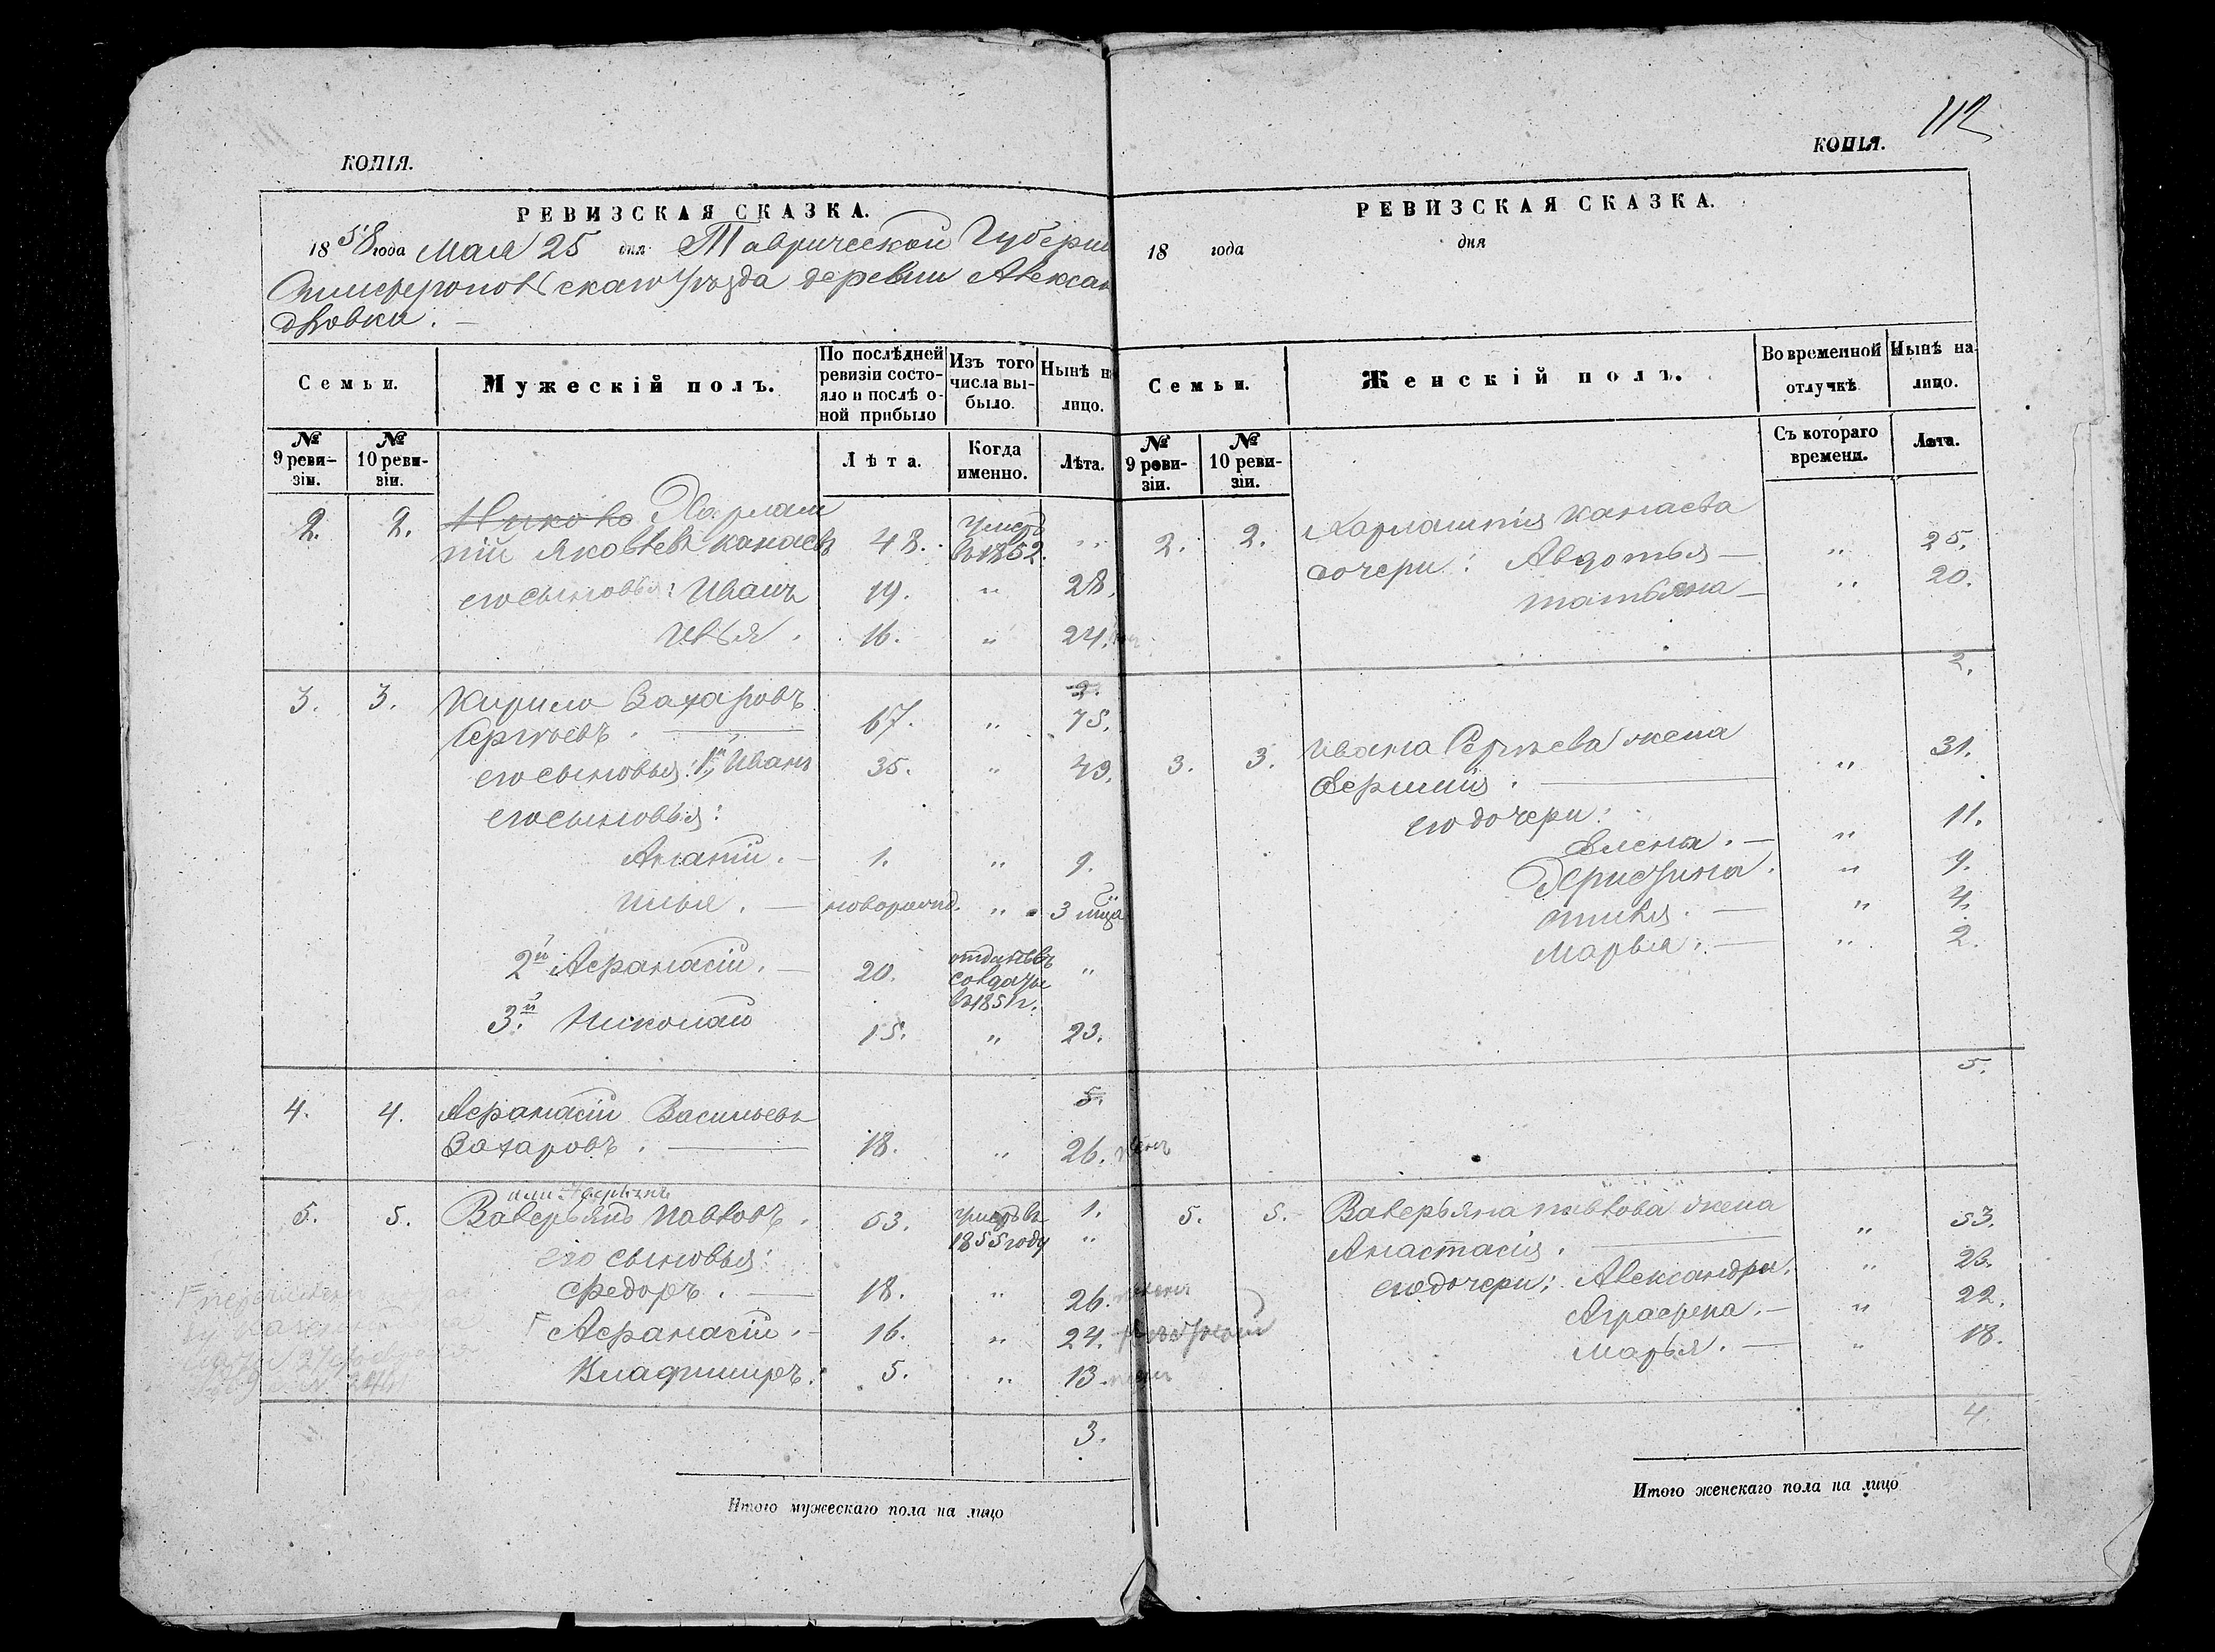 КОПІЯ.
РЕВИЗСКАЯ СКАЗКА.
1858 года Мая 25 дня Таврической Губерніи
Симферопольскаго Уѣзда деревни Алексан
дровки.
Семьи.
Мужескій полъ.
По послѣдней ревизіи состо-
яло и послѣ о-
ной прибыло
Изъ того числа вы-
было.
Нынѣ на
лицо.
№ 9 реви-
зіи.
№ 10 реви-
зіи.
Лѣта.
Когда именно.
Лѣта.
2. 2. Харлам
пій Яковлевъ Канаевъ 48. Умеръ въ 1852. "
его сыновья: Иванъ 19. " 28.
Илья. 16. " 24.
2.
3. 3. Кирило Захаровъ
Сергѣевъ. 67. " 75.
его сыновья: 1й Иванъ 35. " 43.
его сыновья:
Ананій. 1. " 9.
Илья. новорожд. " 3 мца
2й Афанасій. 20. отданъ въ солдаты въ 1851 г. "
3й Николай 15. " 23.
5.
4. 4. Афанасій Васильевъ
Захаровъ. 18. " 26.
1.
5. 5. Валерьянъ Павловъ. 53. умеръ въ 1855 году "
его сыновья:
Федоръ. 18. " 26.
Афанасій. 16. " 24.
Владимиръ. 5. " 13.
3.
Итого мужескаго пола на лицо
112
КОПІЯ.
РЕВИЗСКАЯ СКАЗКА.
18 года дня
Семьи.
Женскій полъ.
Во временной
отлучкѣ
Нынѣ на
лицо.
№ 9 реви-
зіи.
№ 10 реви-
зіи.
Съ котораго
времени.
Лѣта.
2. 2. Харлампія Канаева
дочери: Авдотья " 25.
Татьяна " 20.
2.
3. 3. Ивана Сергѣева жена
" 31.
его дочери:
Елена. " 11.
" 9.
" 4.
Марья. " 2.
5.
5. 5. Валерьяна Павлова жена
Анастасія. " 53.
его дочери: Александра. " 23.
Аграфена. " 22.
Марья. " 18.
4.
Итого женскаго пола на лицо